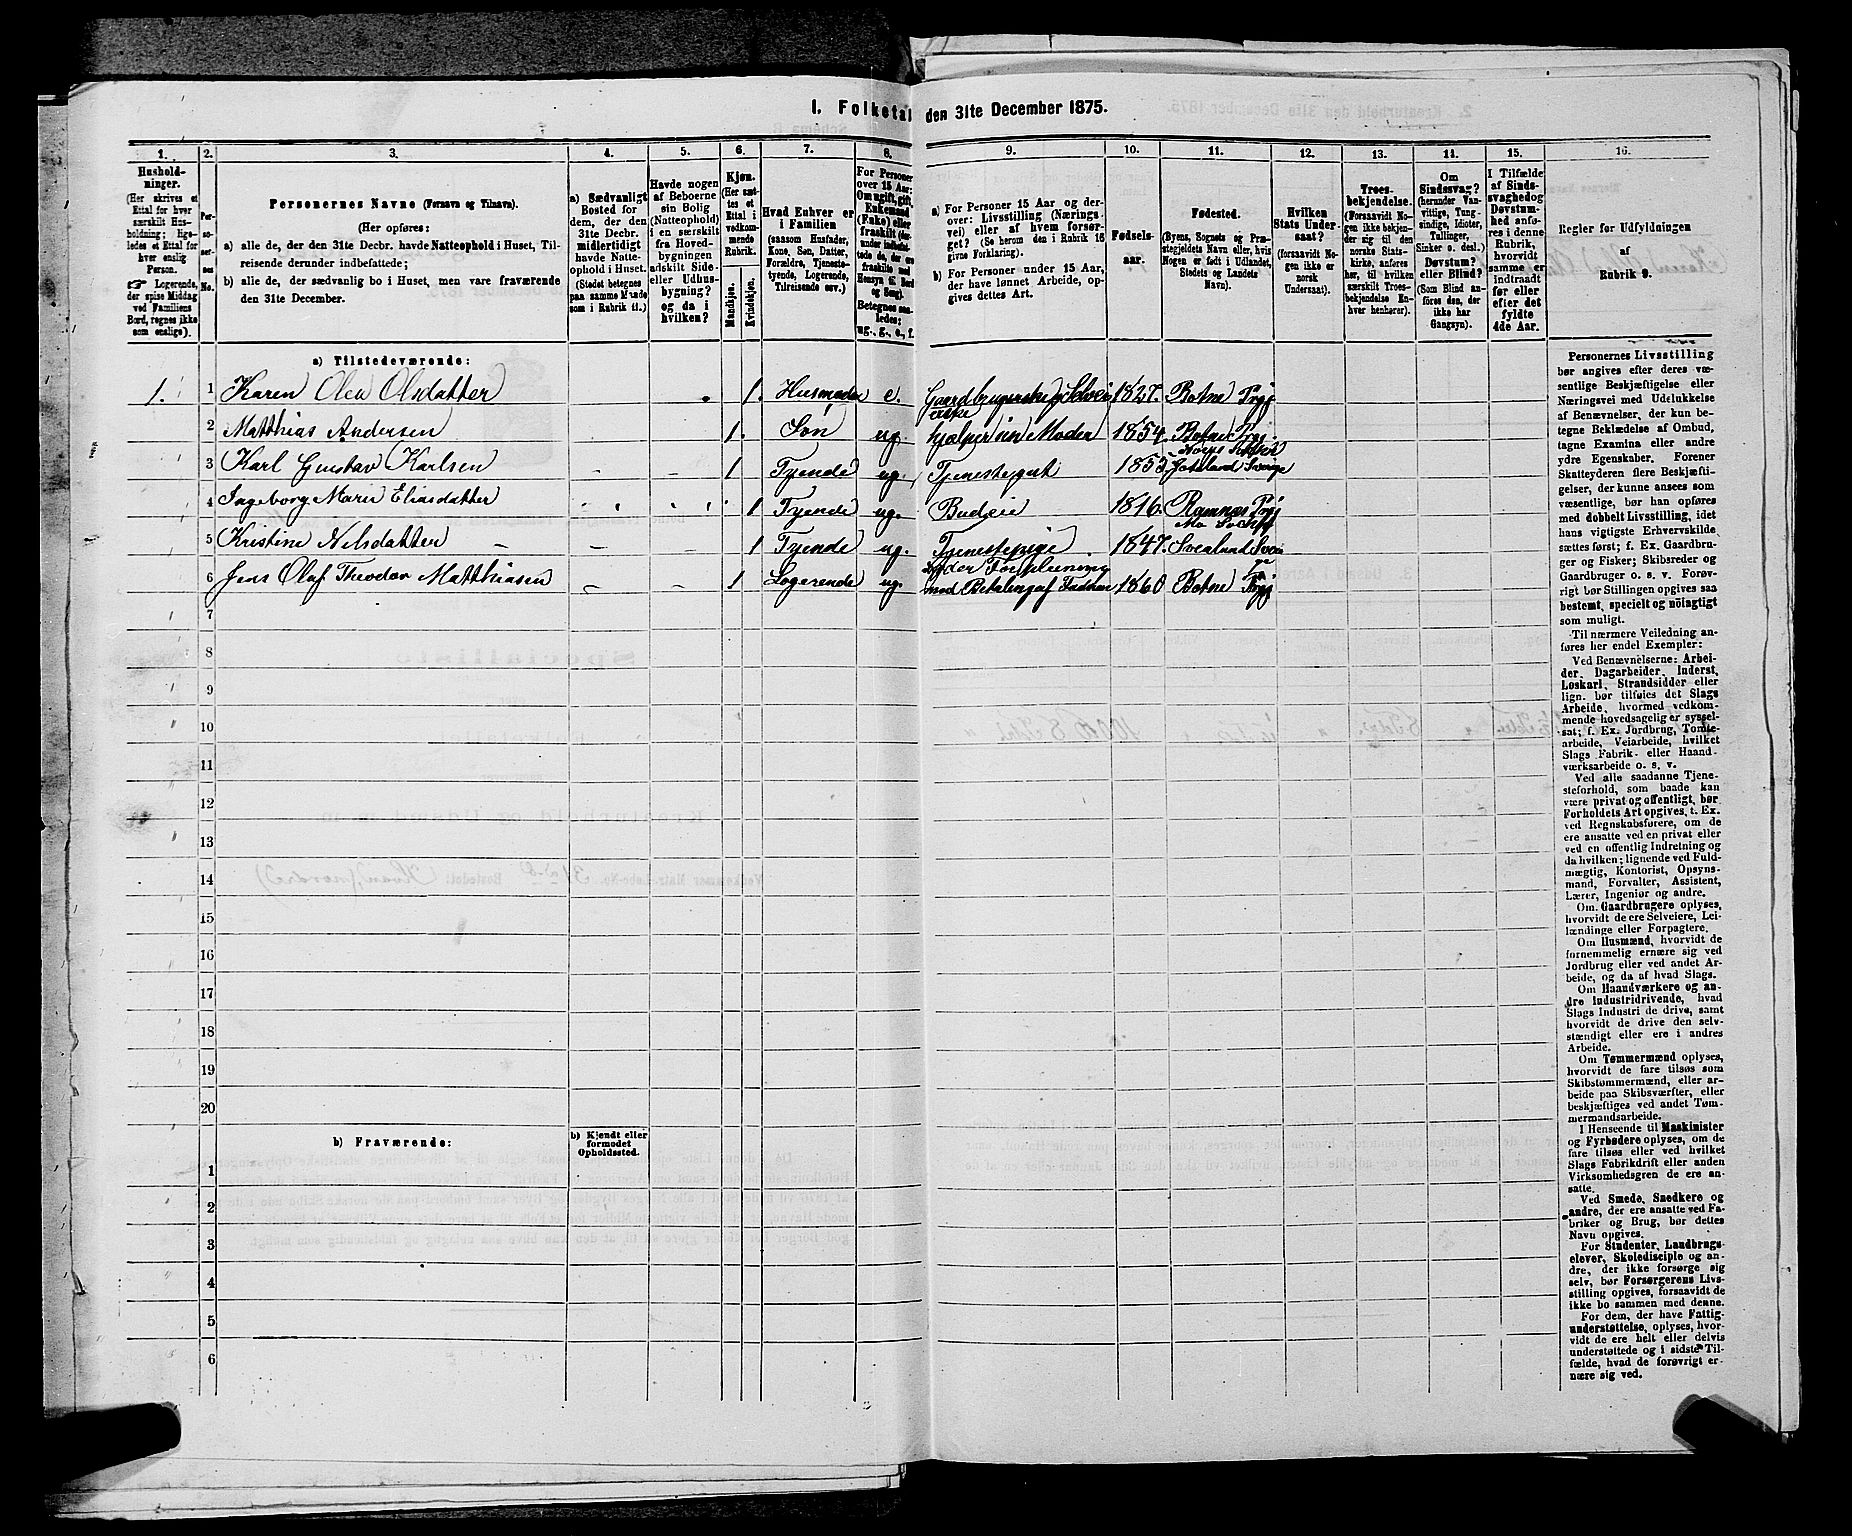 I. Folketal den 31te December 1875.
1. 2. 3. 4. 5. 6. 7. 8. 9. 10. 11. 12. 13. 14. 15. 16.
Hushold-
ninger.
(Her skrives et
Ettal for hver
særskilt Hus-
holdning; lige-
ledes et Ettal for
hver enslig
Person.
☞ Logerende,
der spise Middag
ved Familiens
Bord, regnes ikke
som enslige).
Per-
so-
ner-
nes
No.
Personernes Navne (Fornavn og Tilnavn).
(Her opføres:
a) alle de, der den 31te Decbr. havde Natteophold i Huset, Til-
reisende derunder indbefattede;
b) alle de, der sædvanlig bo i Huset, men vare fraværende
den 31te December.
a) Sædvanligt
Bosted for
dem, der den
31te Decbr.
midlertidigt
havde Natte-
ophold i Huset.
(Stedet betegnes
paa samme Maade
som i Rubrik 11.)
Havde nogen
af Beboerne
sin Bolig
(Natteophold)
i en særskilt
fra Hoved-
bygningen
adskilt Side-
eller Udhus-
bygning?
og da i
hvilken?
Kjøn.
(Her sæt-
tes et
Ettal i
vedkom-
mende
Rubrik.
Mandkjøn.
Kvindekjøn.
Hvad Enhver er
i Familien
(saasom Husfader,
Kone, Søn, Datter,
Forældre, Tjeneste-
tyende, Logerende,
Tilreisende osv.)
For Personer
over 15 Aar:
Om ugift, gift,
Enkemand
(Enke) eller
fraskilt
a) For Personer 15 Aar og der-
over: Livsstilling (Nærings-
vei) eller af hvem forsør-
get? (Se herom den i Rubrik 16
givne Forklaring).
b) For Personer under 15 Aar,
der have lønnet Arbeide, op-
gives dettes Art.
Fødsels-
aar.
Fødested.
(Byens, Sognets og Præ-
stegjeldets Navn eller, hvis
Nogen er født i Udlandet,
Stedets og Landets
Navn).
Hvilken
Stats Under-
saat?
(forsaavidt No-
gen ikke er
norsk
Undersaat).
Troes-
bekjendelse.
(Forsaavidt No-
gen ikke bekjen-
der sig til den
norske Stats-
kirke, anføres
her, til hvilken
særskilt Troes-
bekjendelse En-
hver henhører).
Om
Sindssvag?
(herunder Van-
vittige, Tung-
sindige, Idioter,
Tullinger,
Sinker o. desl.)
Døvstum?
eller Blind?
(Som Blind an-
føres den, der
ikke har
Gangsyn).
I Tilfælde
af Sinds-
svaghed og
Døvstum-
hed anfø-
res i denne
Rubrik,
hvorvidt
samme er
indtraadt
før eller
efter det
fyldte
4de Aar.
Regler for Udfyldningen
af
Rubrik 9.
a) Tilstedeværende:
1. 1 Karen Olea Olsdatter 1. Husmoder e. Gaardbrugerske, Selvei-
erske 1827. Botne Prgj
2 Matthias Andersen 1. Søn ug. hjælper sin Moder 1854. Botne Prgj.
3 Karl Gustav Karlsen 1 Tyende ug. Tjenestegut 1853 Gotaland Sverige
4 Ingeborg Marie Eliasdatter 1 Tyende ug. Budeie 1846. Ramnæs Prgj
5 Kristine Nilsdatter 1 Tyende ug. Tjenestepige 1847. Svealand Sverige
6 Jens Olaf Theodor Matthiasen 1 Logerende ug. under Forpleining
mod Betaling af Faderen 1860 Botne Prgj
7
8
9
10
11
12
13
14
15
16
17
18
19
20
b) Fraværende:
b) Kjendt eller
formodet
Opholdssted.
1
2
3
4
5
6
Personernes Livsstilling
bør angives efter deres væ-
sentlige Beskjæftigelse eller
Næringsvei med Udelukkelse
af Benævnelser, der kun be-
tegne Beklædelse af Ombud,
tagne Examina eller andre
ydre Egenskaber. Forener
Skatteyderen flere Beskjæfti-
gelser, der kunne ansees som
væsentlige, bør han opføres
med dobbelt Livsstilling, idet
hans vigtigste Erhvervskilde
sættes først; f. Ex. Gaardbru-
ger og Fisker; Skibsreder og
Gaardbruger o. s. v. Forøv-
rigt bør Stillingen opgives saa
bestemt, specielt og nöiagtigt
som muligt.
Til nærmere Veiledning an-
føres her endel Exempler:
Ved Benævnelserne: Arbei-
der, Dagarbeider, Inderst,
Løskarl, Strandsidder eller
lign. bør tilføies det Slags
Arbeide, hvormed vedkom-
mende hovedsagelig er syssel-
sat; f. Ex. Jordbrug, Tomte-
arbeide, Veiarbeide, hvilket
Slags Fabrik- eller Haand-
værksarbeide o. s. v.
Ved alle saadanne Tjene-
steforhold, som baade kan
være privat og offentligt, bør
Forholdets Art opgives, t. Ex.
ved Regnskabsførere, om de
ere ansatte ved en privat eller
ved en offentlig Indretning og
da hvilken; lignende ved Fuld-
mægtig, Kontorist, Opsyns-
mand, Forvalter, Assistent,
Lærer, Ingeniør og andre.
Om Gaardbrugere oplyses,
hvorvidt de ere Selveiere, Lei-
lændinge eller Forpagtere.
Om Husmænd, hvorvidt de
fornemmelig ernære sig ved
Jordbrug eller ved andet Ar-
beide, og da af hvad Slags.
Om Haandværkere og an-
dre Industridrivende, hvad
Slags Industri de drive, samt
hvorvidt de drive den selv-
stændigt eller ere i andres
Arbeide.
Om Tømmermænd oplyses,
hvorvidt de fare tilsøs som
Skibstømmermænd, eller ar-
beide paa Skibsværfter, eller
beskjæftiges ved andet Tøm-
mermandsarbeide.
I Henseende til Maskinister
og Fyrbødere oplyses, om de
fare tilsøs eller ved hvilket
Slags Fabrikdrift eller anden
Virksomhedsgren de ere an-
satte.
Ved Smede, Snedkere og
andre, der ere ansatte ved Fa-
briker og Brug, bør dettes
Navn opgives.
For Studenter, Landbrugs-
elever, Skoledisciple og an-
dre, der ikke forsørge sig
selv, bør Forsørgerens Livs-
stilling opgives, forsaavidt de
ikke bo sammen med denne.
For dem, der have Fattig-
understøttelse, oplyses, hvor-
vidt de ere helt eller delvis
understøttede og i sidste Til-
fælde, hvad de forøvrigt er-
nære sig ved.